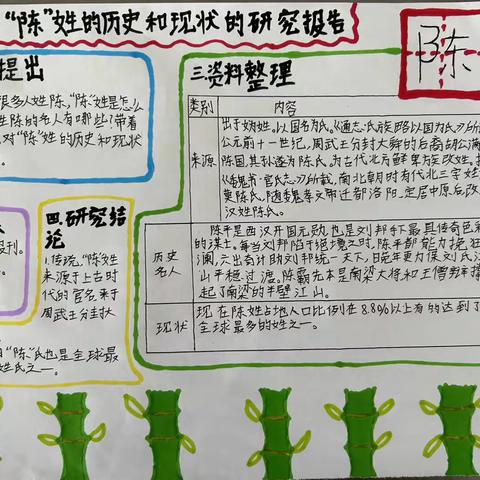 “陈”姓的历史和现状的研究报告
陈
提出
很多人姓陈，“陈”姓是怎么
姓陈的名人有哪些？带着
对“陈”姓的历史和现状
报刊。
四.研究结论
1.传统，“陈”姓
来源于上古时
代的官名来于
周武王分封
“陈”氏也是全球最
姓氏之一。
三资料整理
类别 内容
来源
出于妫姓，以国名为氏。《通志·氏族略·以国为氏》所
公元前十一世纪，周武王分封大舜的后裔胡公满
陈国，其子孙遂为陈氏，为古代北方鲜卑族改姓。据
《魏书·官氏志》所载，南北朝时有代北三字姓
莫陈氏，随魏孝文帝迁都洛阳，定居中原后改
汉姓陈氏。
历史名人
陈平是西汉开国元勋，也是刘邦帐下最具传奇色彩
的谋士。每当刘邦陷于绝境之时，陈平都能力挽狂
澜，六出奇计助刘邦统一天下，日晚年更力保刘氏江
山平稳过渡。陈霸先本是南梁大将和王僧辩撑
起了南梁的半壁江山。
现状
现在陈姓占地人口比例在8.80%以上有的达到了
全球最多的姓之一。